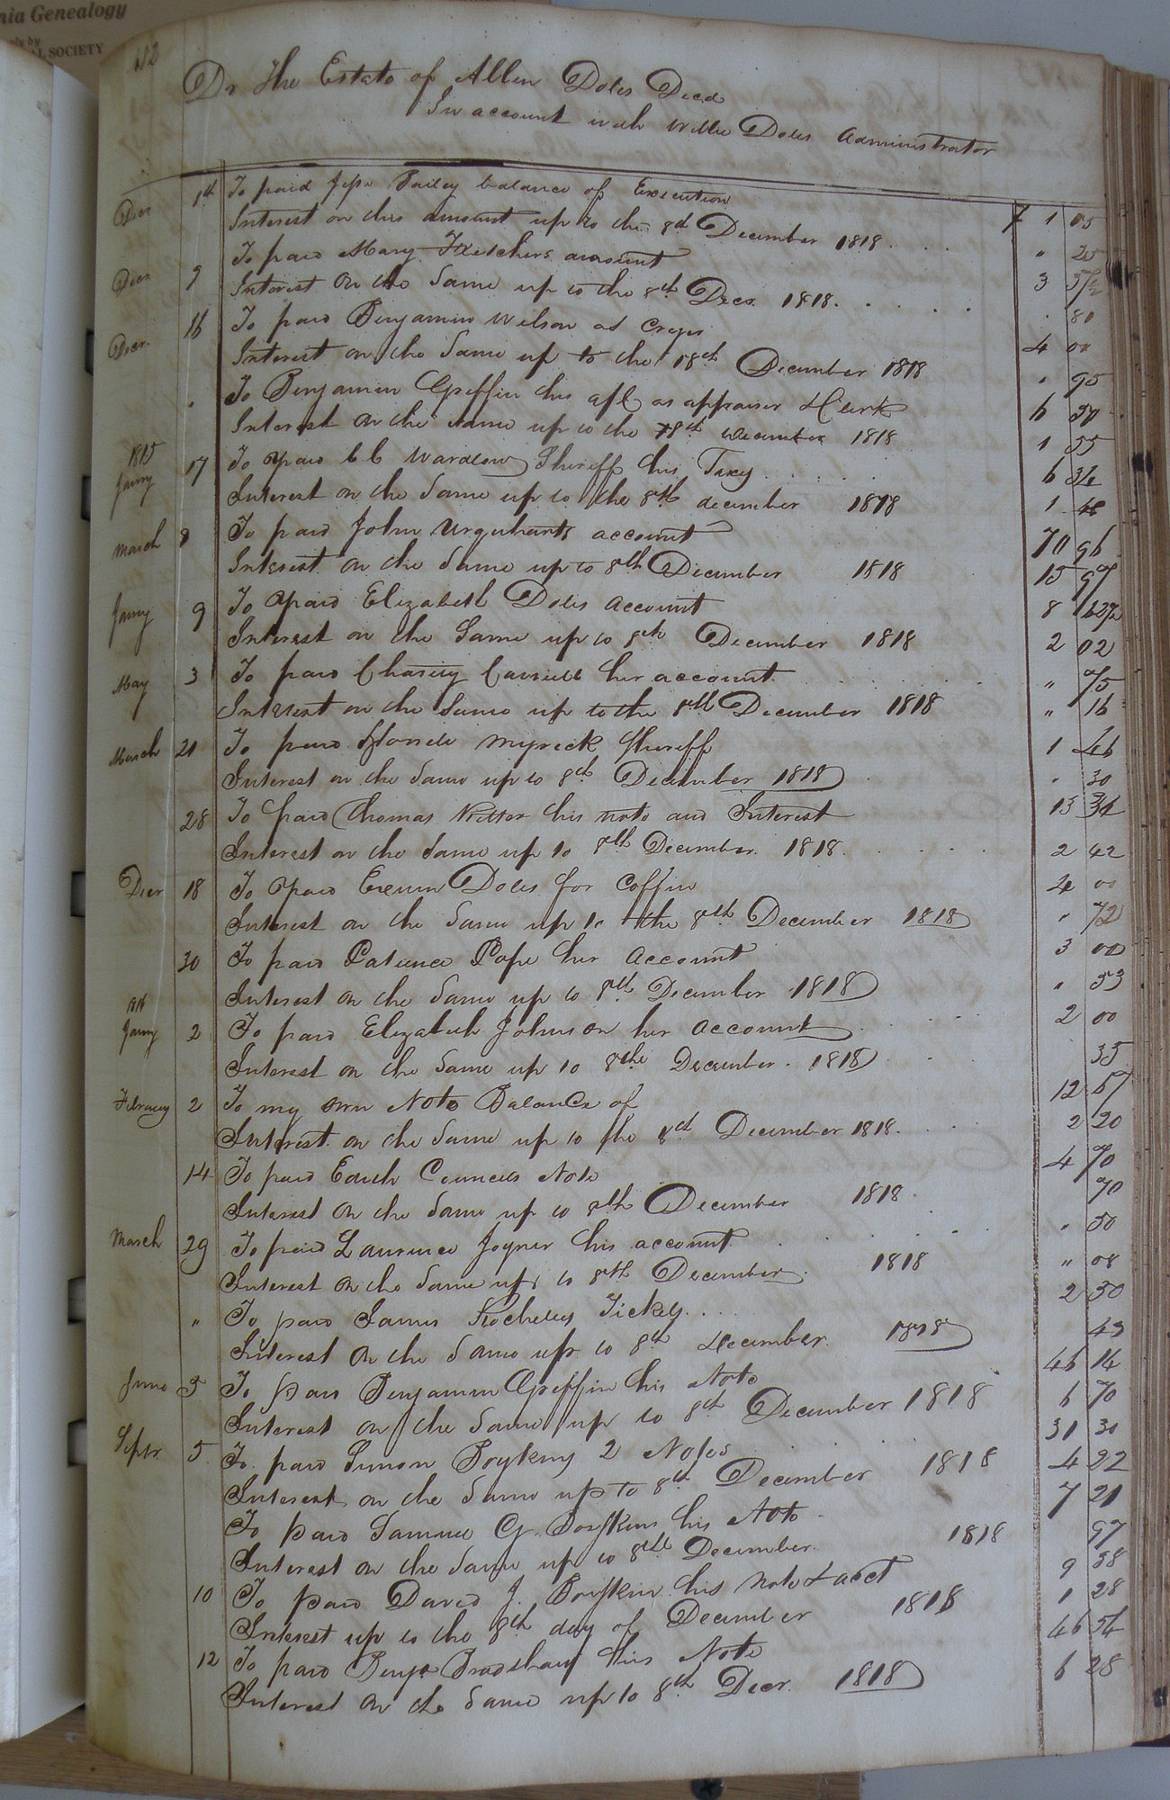 nia Genealogy
SOCIETY
Dr The Estate of Allen Doles Decd
In account with Willie Doles Administrator
Decr 1st To paid Jesse Bailey balance of Execution 1 05
Interest on this amount up to the 8th December 1818 " 25
Decr 9 To paid Mary Fletchers amount 3 37½
Interest on the Same up to the 8th Decr 1818. 80
Decr 16 To paid Benjamin Wilson as Cryer 4 00
Interest on the Same up to the 18th December 1818 " 95
" To Benjamin Griffin his as appraiser & Clerk 6 50
Interest on the same up to the 8th December 1818 1 55
1815 Jany 17 To paid Wardlow Sheriff his 6 34
Interest on the Same up to the 8th december 1818 1 48
March 8 To paid John Urquharts account 70 96
Interest on the Same up to 8th December 1818 15 97
Jany 9 To paid Elizabeth Doles account 8 62½
Interest on the Same up to 8th December 1818 2 02
May 3 To paid Charity her account " 75
Interest on the Same up to the 8th December 1818 " 16
March 21 To paid Myrick Sheriff 1 46
Interest on the Same up to 8th December 1818 " 30
28 To paid Thomas his note and Interest 13 34
Interest on the Same up to 8th December 1818. 2 42
Decr 18 To paid Exum Doles for Coffin 4 00
Interest on the Same up to the 8th December 1818 " 72
30 To paid Patience Pope her Account 3 00
Interest on the Same up to 8th December 1818 " 53
Jany 2 To paid Elizabeth Johnson her account 2 00
Interest on the Same up to 8th December. 1818 35
February 2 To my own Note Balance of 12 67
Interest on the Same up to the 8th December 1818. 2 20
14 To paid Councils Note 4 70
Interest on the Same up to 8th December 1818. 70
March 29 To paid Laurence Joyner his account " 50
Interest on the Same up to 8th December. 1818 " 08
" To paid James Rochelles Ticket 2 30
Interest on the Same up to 8th December. 1818 43
June 5 To paid Benjamin Griffin his Note 46 14
Interest on the Same up to 8th December 1818 6 70
Septr 5 To paid Simon Boykins 2 Notes 31 30
Interest on the Same up to 8th December 1818 4 22
To paid Samuel G. Boykins his Note 7 21
Interest on the Same up to 8th December. 1818 97
10 To paid David J. Boykin his note & acct 9 38
Interest up to the 8th day of December 1818 1 28
12 To paid Benja Bradshaw his Note 46 54
Interest on the Same up to 8th Decr. 1818 6 28